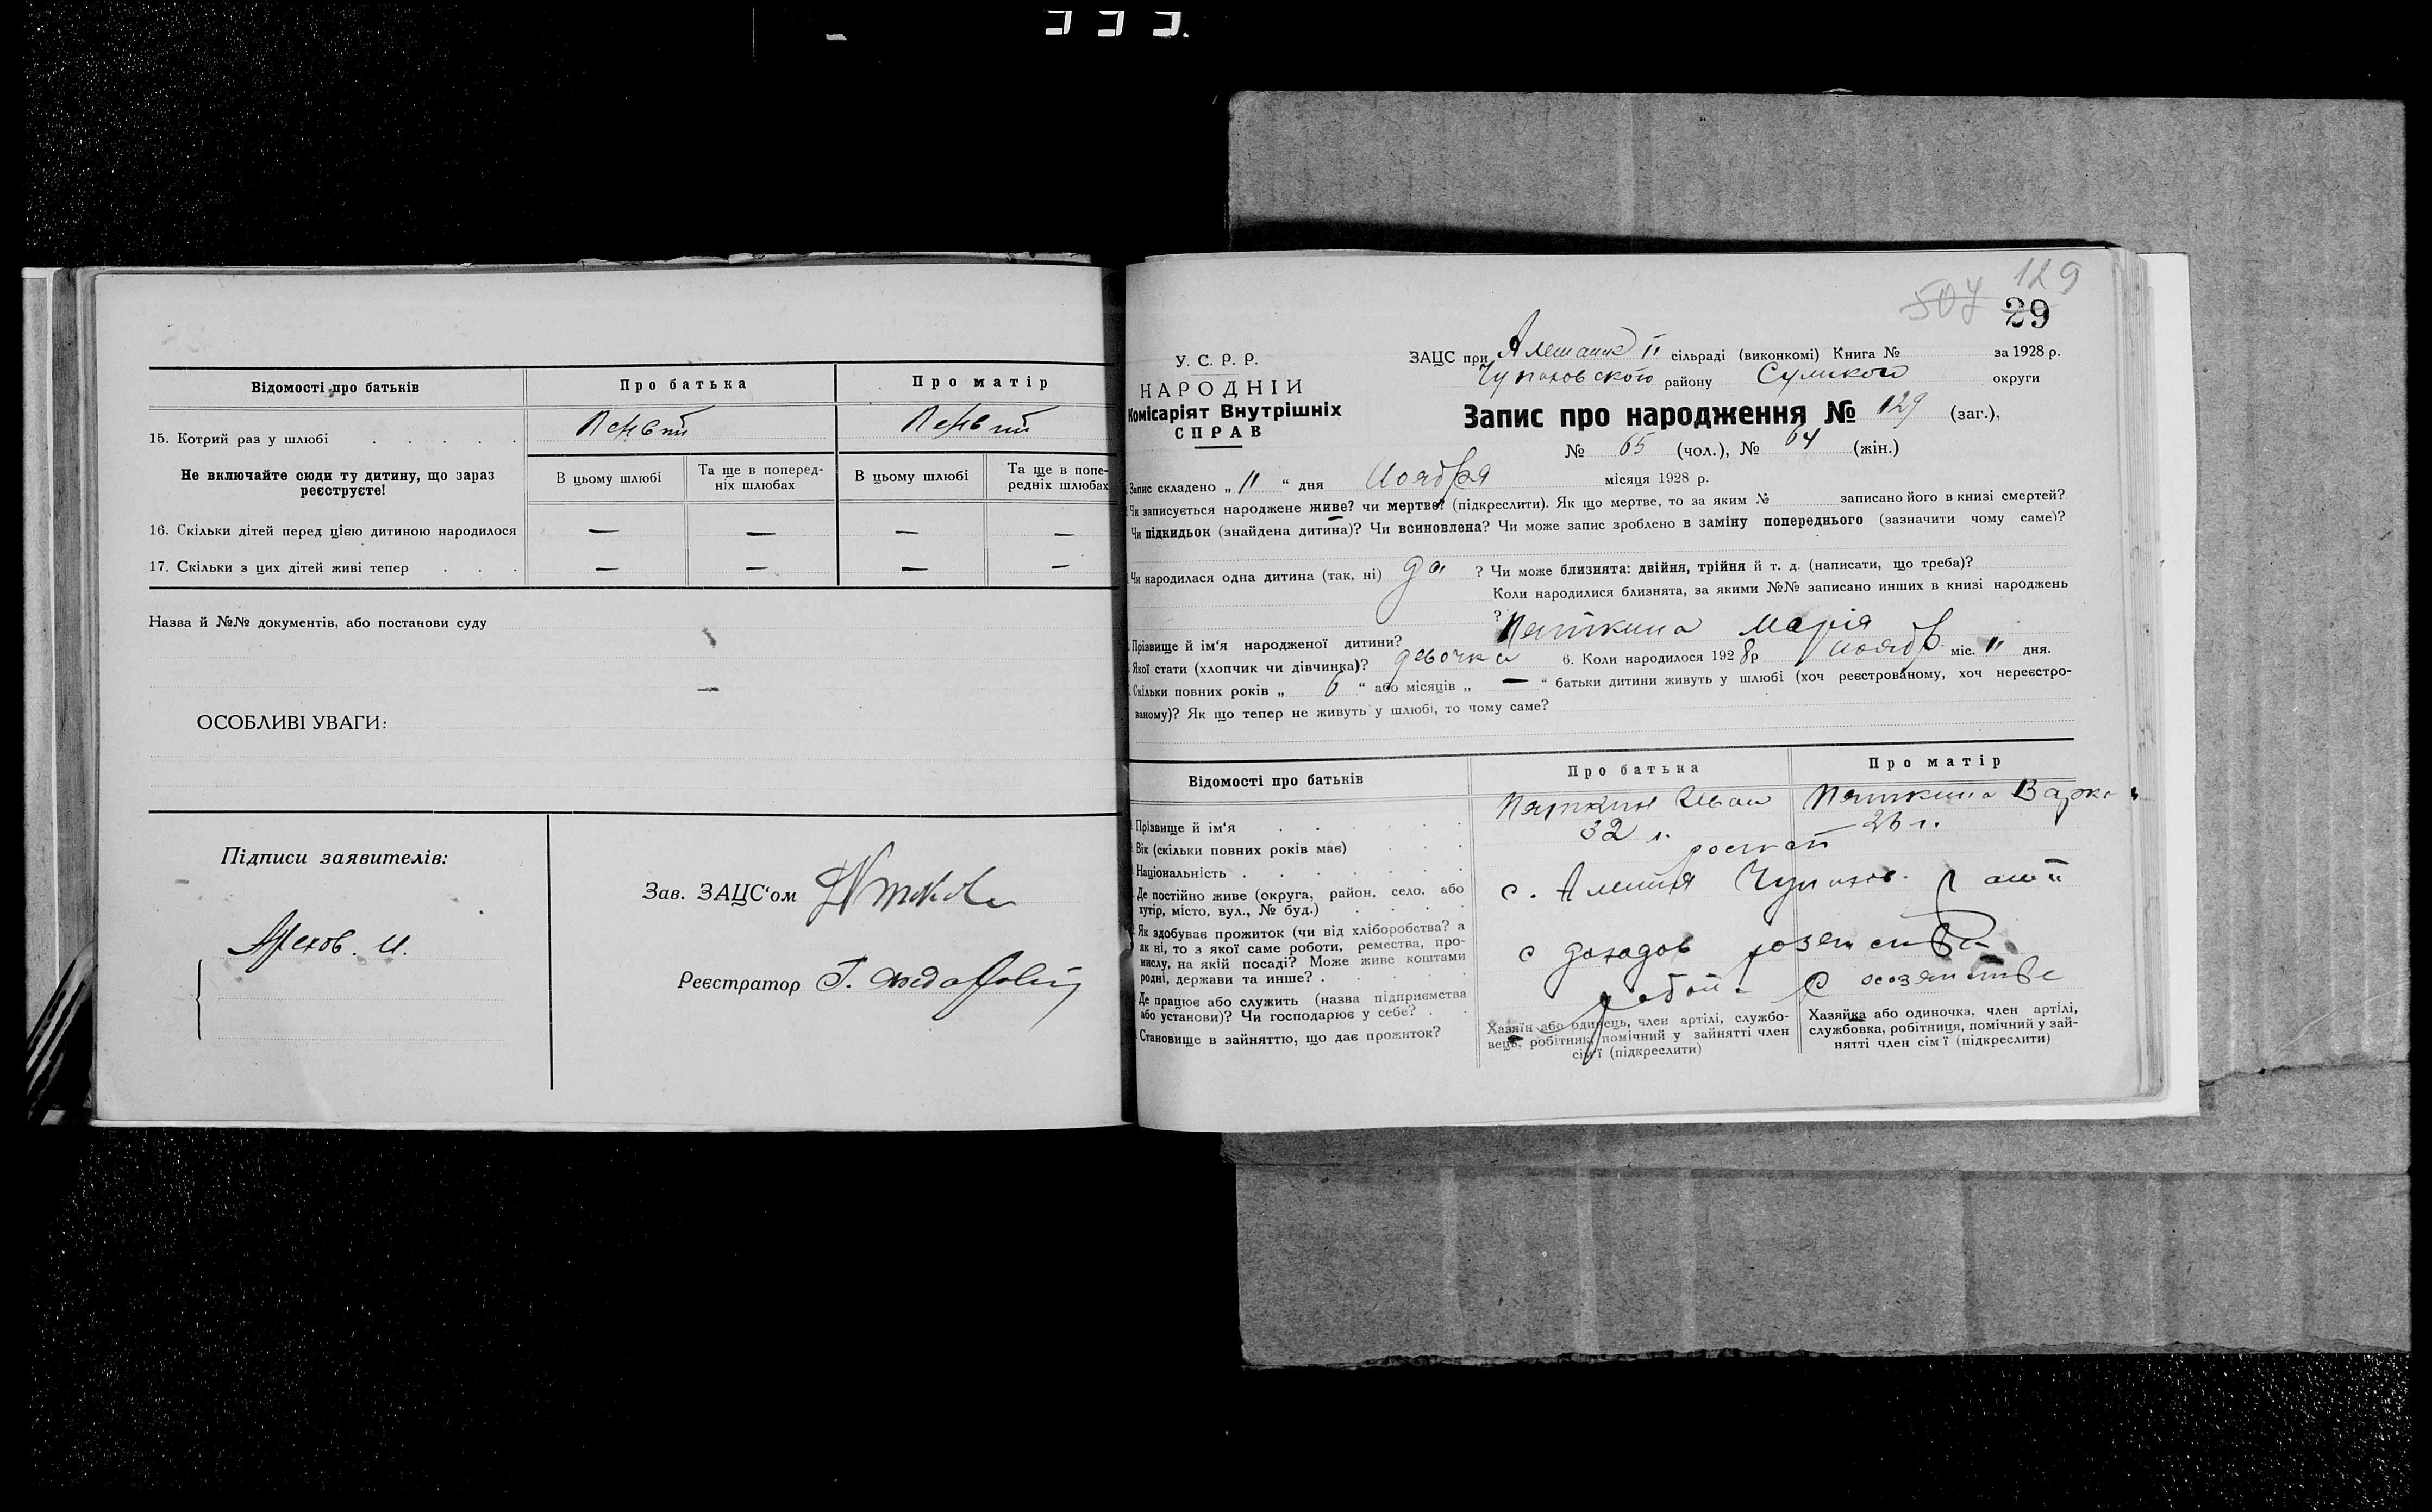 Відомості про батьків
Про батька
Про матір
15. Котрий раз у шлюбі . . . . .
Первий
Первий
Не включайте сюди ту дитину, що зараз
реєструєте!
В цьому шлюбі
Та ще в поперед-
ніх шлюбах
В цьому шлюбі
Та ще в попе-
редніх шлюбах
16. Скільки дітей перед цією дитиною народилося
— — — —
17. Скільки з цих дітей живі тепер . . .
— — — —
Назва й №№ документів, або постанови суду
—
ОСОБЛИВІ УВАГИ:
Підписи заявителів:
Зав. ЗАЦС‘ом
Реєстратор
129
507
29
У. С. Р. Р.
НАРОДНІЙ
Комісаріят Внутрішніх
СПРАВ
ЗАЦС при сільраді (виконкомі) Книга № за 1928 р.
району Сумской округи
Запис про народження № 129 (заг.),
№ 65 (чол.), № 64 (жін.)
Запис складено „ 11 “ дня Ноября місяця 1928 р.
Чи записується народжене живе? чи мертве? (підкреслити). Як що мертве, то за яким № записано його в книзі смертей?
Чи підкидьок (знайдена дитина)? Чи всиновлена? Чи може запис зроблено в заміну попереднього (зазначити чому саме)?
Чи народилася одна дитина (так, ні) да ? Чи може близнята: двійня, трійня й т. д. (написати, що треба)?
Коли народилися близнята, за якими №№ записано инших в книзі народжень
?
Прізвище й ім‘я народженої дитини? Пяткина Марія
Якої стати (хлопчик чи дівчинка)? девочка 6. Коли народилося 1928р Ноябр. міс. 11 дня.
Скільки повних років „ 6 “ або місяців „ — “ батьки дитини живуть у шлюбі (хоч реєстрованому, хоч нереєстро-
ваному)? Як що тепер не живуть у шлюбі, то чому саме?
Відомості про батьків
Про батька
Про матір
Прізвище й ім‘я . . . . .
Пяткин Иван
Пяткина
Вік (скільки повних років має) . . .
32 г.
26 г.
Національність . . . . . . .
Де постійно живе (округа, район, село, або
хутір, місто, вул., № буд.) . . . .
с.
Як здобуває прожиток (чи від хліборобства? а
як ні, то з якої саме роботи, ремества, про-
мислу, на якій посаді? Може живе коштами
родні, держави та инше? . . . . .
с доходов
Де працює або служить (назва підприємства
або установи)? Чи господарює у себе? . .
Становище в зайняттю, що дає прожиток?
Хазяїн або одинець, член артілі, службо-
вець, робітник, помічний у зайнятті член
сім‘ї (підкреслити)
Хазяйка або одиночка, член артілі,
службовка, робітниця, помічний у зай-
нятті член сім‘ї (підкреслити)